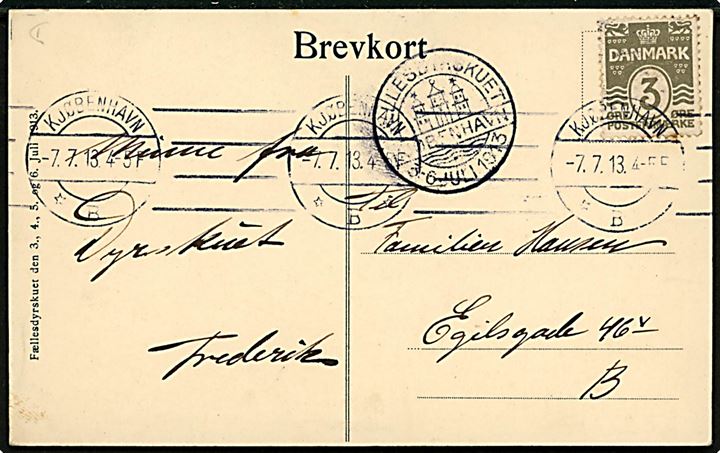 Brevkort
DANMARK
3
ØRE ØRE
POSTFRIM MÆRKE
KJØBENHAVN
-7.7.13. 4-5 F
B
KJØBENHAVN
-7.7.13. 4-5
B
KJØBENHAVN
-7.7.13. 4-5 F
B
FÆLLESDYRSKUET I
KØBENHAVN
3-6 JULI 1913
Fællesdyrskuet den 3., 4., 5. og 6. Juli 1913.
Minne fra
Dyrskuet
Frederik
Til
Familien Hansen
Egilsgade 46 v
B